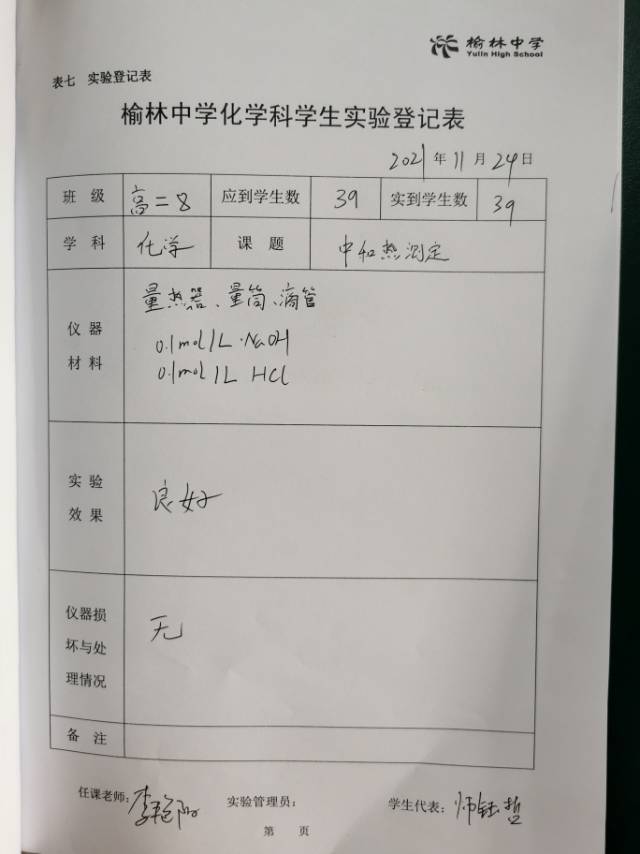 榆林中学
Yulin High School
表七 实验登记表
榆林中学化学科学生实验登记表
2021年11月24日
班 级 高二8 应到学生数 39 实到学生数 39
学 科 化学 课 题 中和热测定
仪 器 材 料
量热器、量筒、滴管
0.1mol/L·NaOH
0.1mol/L HCl
实 验 效 果
良好
仪器损坏与处理情况
无
备 注
任课老师: 实验管理员: 学生代表:
第 页